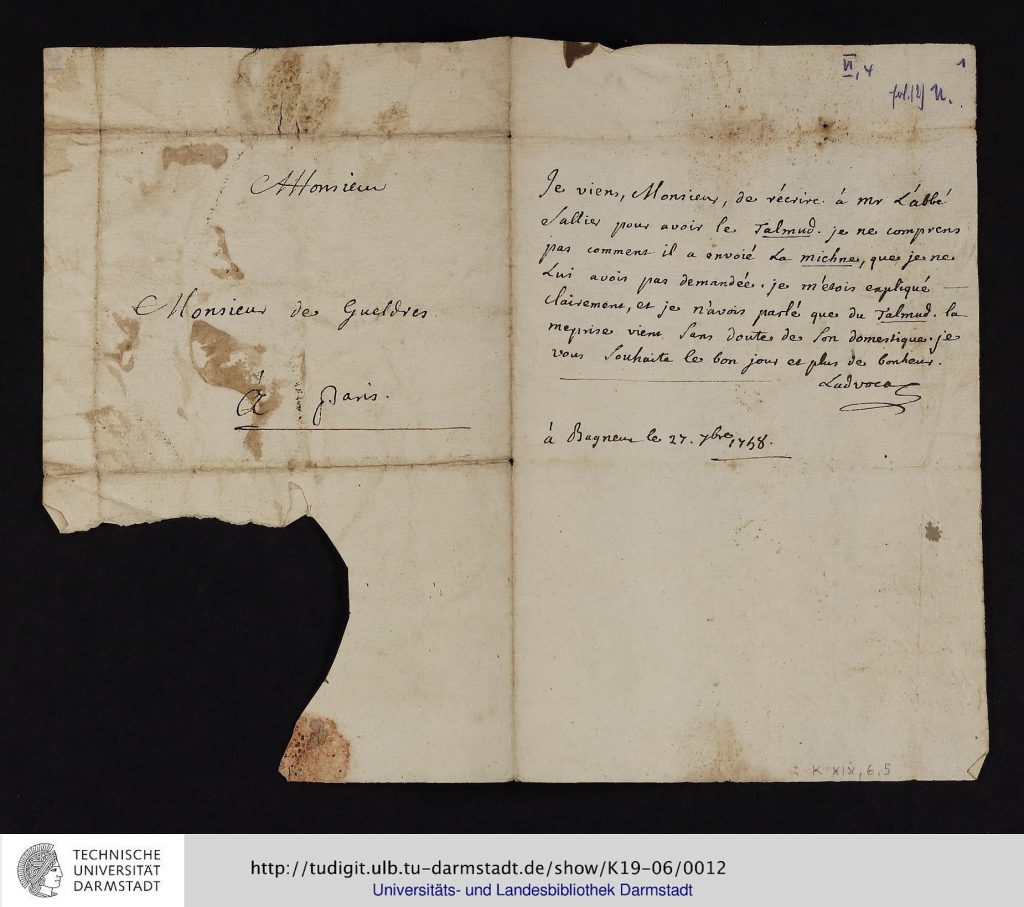 Monsieur
Monsieur de Gueldres.
à Paris.
VI, 4
1
Je viens, Monsieur, de récrire à mr L'abbé
Sallier pour avoir le Talmud. je ne comprens
pas comment il a envoié La michne, que je ne
Lui avois pas demandée. je m'étois expliqué
clairement, et je n'avois parlé que du Talmud. la
meprise vient Sans doute de Son domestique. je
vous Souhaite le bon jour et plus de bonheur.
Ladvocat
à Bagneux le 27. 7bre 1758.
K XIX, 6, 5
TECHNISCHE
UNIVERSITÄT
DARMSTADT
http://tudigit.ulb.tu-darmstadt.de/show/K19-06/0012
Universitäts- und Landesbibliothek Darmstadt